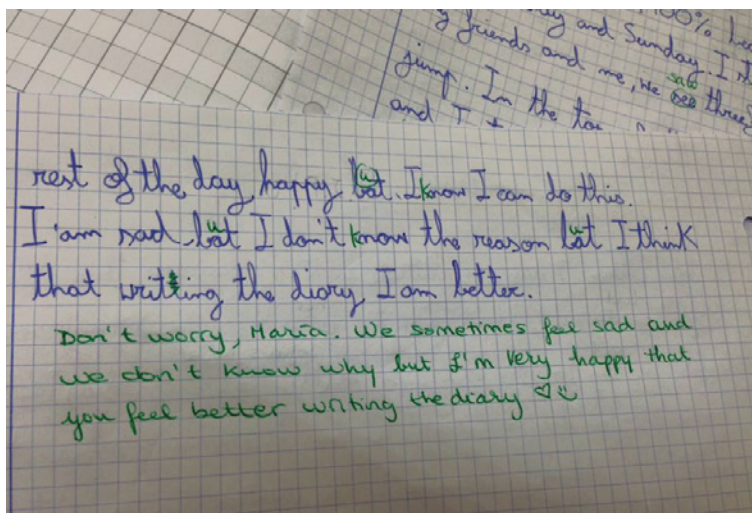 100% he
y and Sunday. I
friends and me, we saw see three
jump. In the
and I
rest of the day happy bat. I know I can do this.
I'am sad, bat I don't know the reason bat I think
that writting the diary I am better.
Don't worry, María. We sometimes feel sad and
we don't know why but I'm very happy that
you feel better writing the diary ♡☺